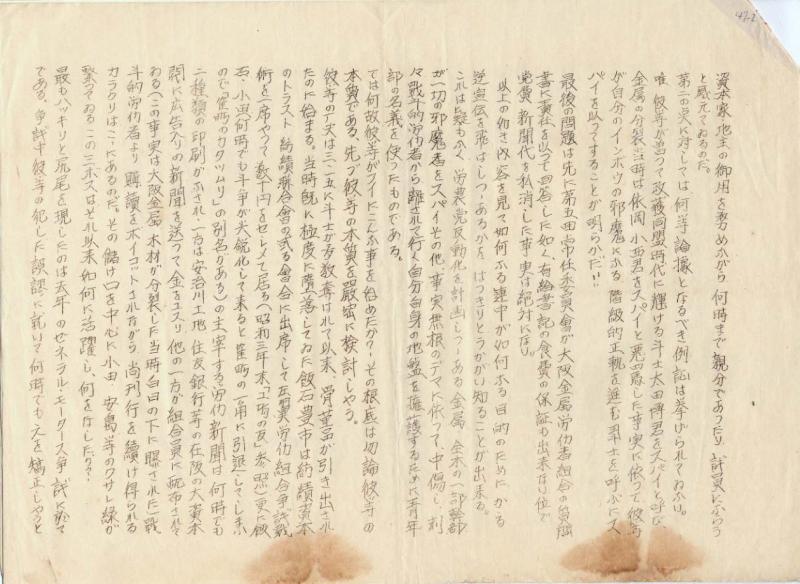 47-2
資本家地主の御用を努めながら 何時まで親分であつたり、評議員にならう
と威充てゐるのだ。
第二の点に対しては何等論據となるべき例証は挙げられてゐない。
唯 彼等が曽つて政獲同盟時代に輝ける斗士太田博君をスパイと呼び
金属の分裂当時は依岡 小西君をスパイと悪罵した事実に依つて 彼等
が自分のインボウの邪魔になる 階級的正親を進む斗士を呼ぶにス
パイを以つてすることが明らかだ！！
最後の問題は先に第五回常任委員會が大阪金属労仂者組合の質問
書に責任を以つて回答した如く、有給書記の食費の保証も出来ない位で
党費 新聞代を私消した事実は絶対にない
以上の如き内容を見て如何なる連中が如何なる目的のために かゝる
逆宣伝を飛ばしつゝあるかを はつきりとうかがい知ることが出来る。
これは疑もなく 労農党反動化を計画しつゝある金属 全木の一部幹部
が一切の邪魔者をスパイその他、事実無根のデマに依つて、中傷し、刻
々戦斗的労仂者から離されて行く自分自身の地盤を擁護するために青年
部の名義を使つたものである。
では何故彼等がツイにこんな事を始めたか？その根底は勿論彼等の
本質である、先づ彼等の本質を厳密に検討しやう。
彼等の台丈は三・一五に斗士が多数奪はれて以来、骨董品が引き出され
たのに始まる。当時既に極度に墮落してゐた飯石豊市は紡績資本
のトラスト 紡績聯合會の或る會合に出席して左翼労仂組合争議戦
術を一席やつて数十円をセシメて居る（昭和三年末「工場の友」参照）更に飯
石・小田何時でも斗争が尖鋭化して来ると産所の一角に引退してしまふ
ので「産所のカタツムリ」の別名がある）の主宰する労仂新聞は何時でも
二種類の印刷がなされ・一方は安治川工地 住友銀行等の在阪の大資本
閥に広告入りの新聞を送つて金をユスリ 他の一方が組合員に配布されて
ゐる（この事実は大阪金属 木材が分裂した当時白日の下に曝された）戦
斗的労仂者より購読をボイコツトされながら 尚刊行を續け得られる
カラクリはこゝにあるのだ。その儲け口を中心に小田・安島等のクサレ縁が
繋つてゐるこの三ボスはそれ以来如何に活躍し、何をなしたか？
最もハツキリと尻尾を現したのは去年のゼネラル・モータース争議に於て
である。争議中彼等の犯した誤謬に就いて何時でも之を矯正しやうと